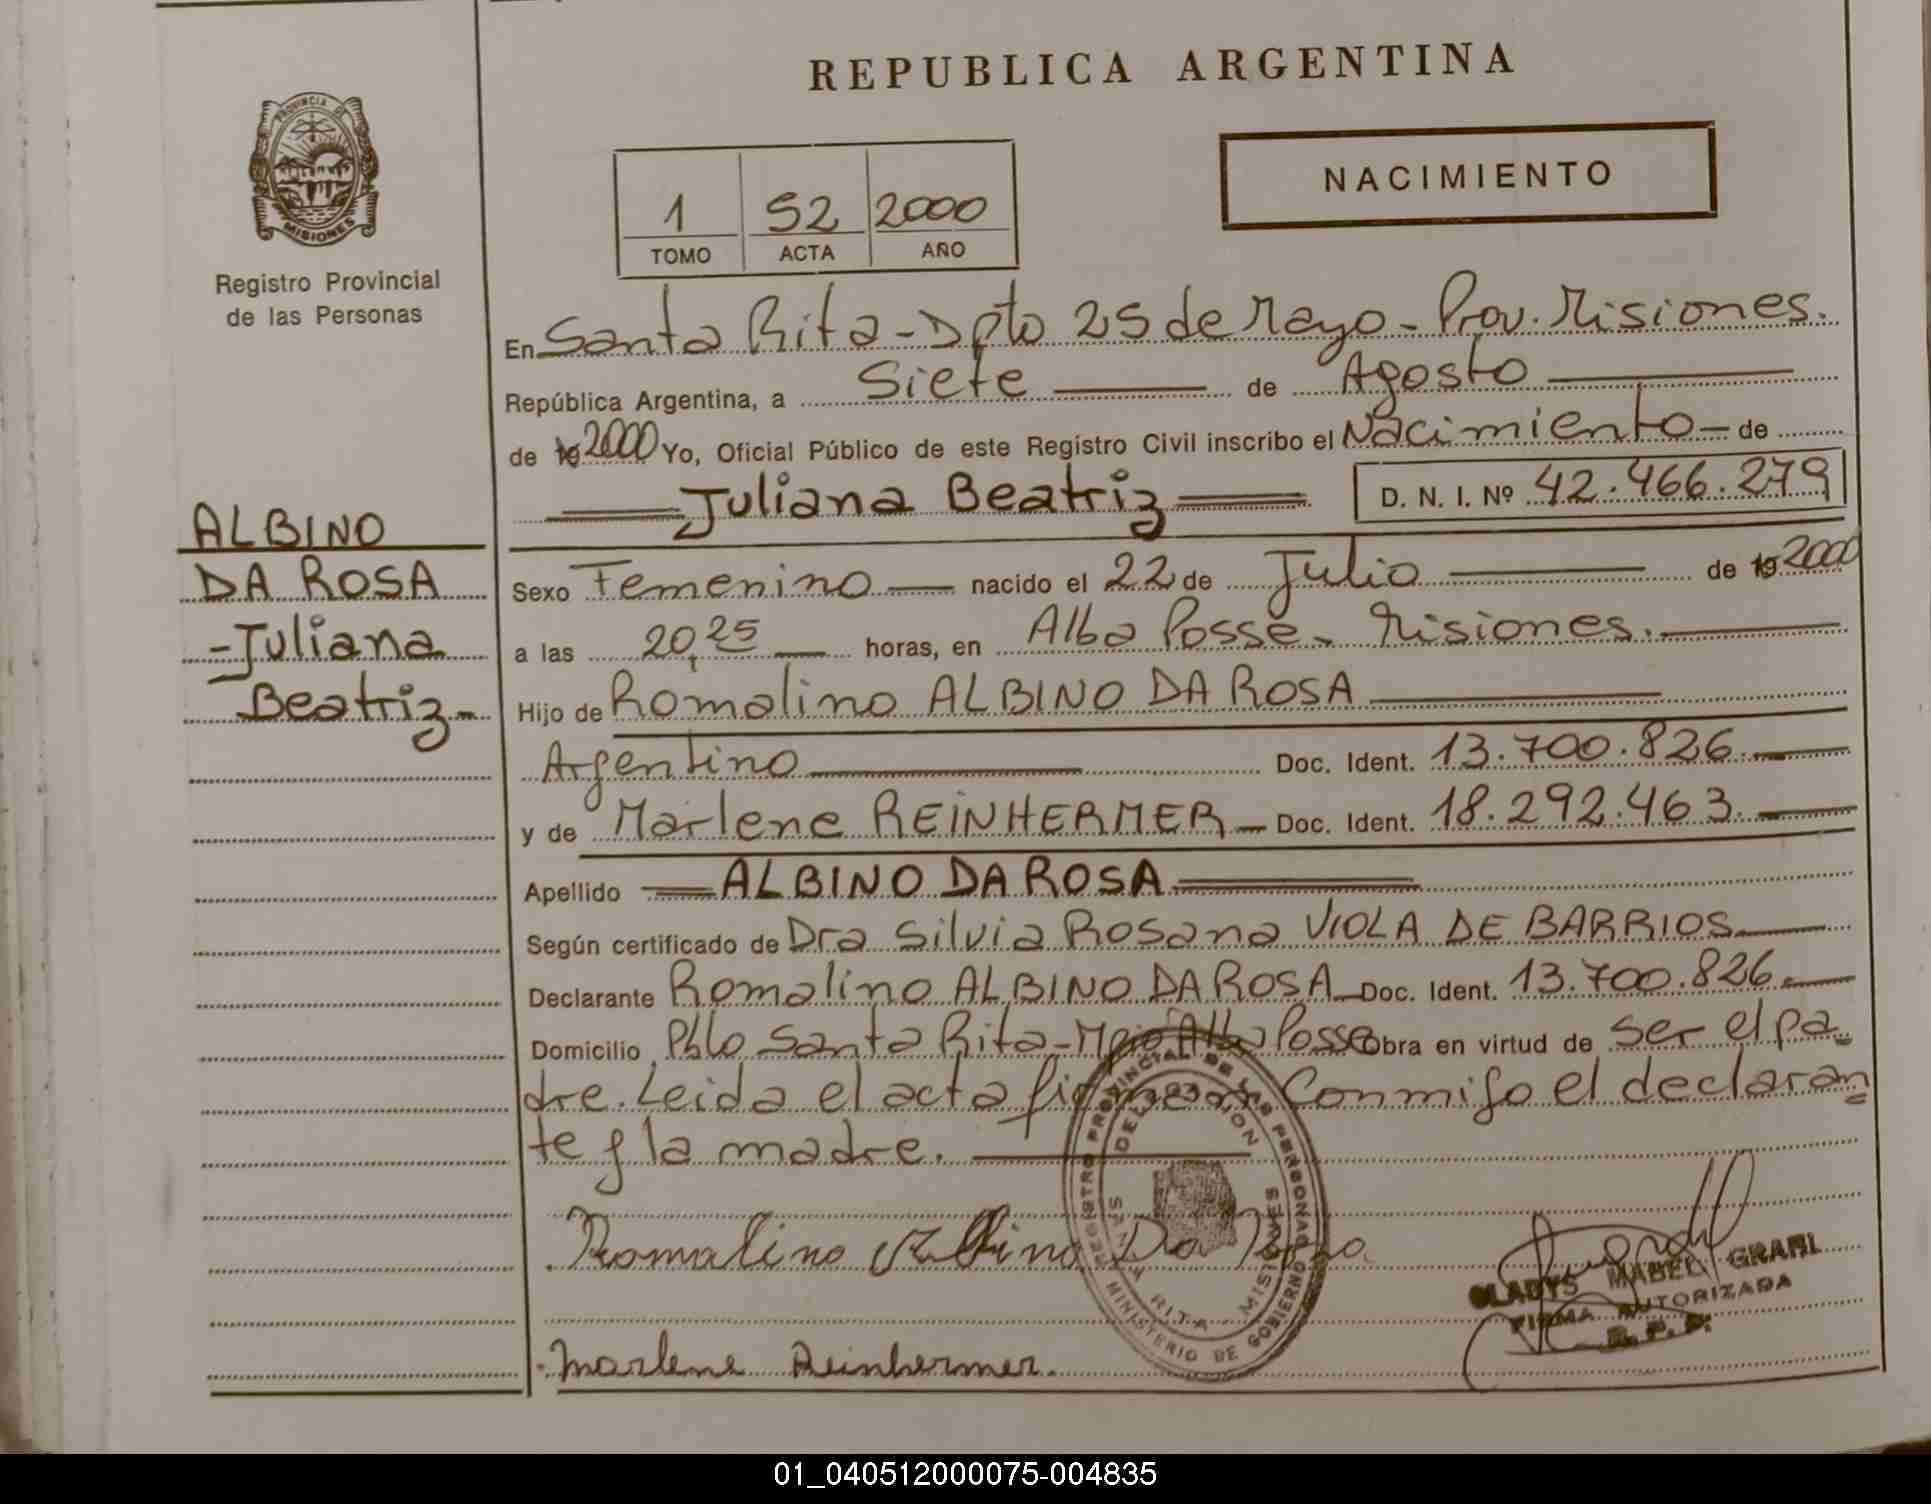 REPUBLICA ARGENTINA
PROVINCIA DE
MISIONES
Registro Provincial
de las Personas
NACIMIENTO
1 52 2000
TOMO ACTA AÑO
En Santa Rita - Dpto 25 de Mayo - Prov. Misiones.
República Argentina, a Siete de Agosto
de 19 2000 Yo, Oficial Público de este Registro Civil inscribo el Nacimiento - de
Juliana Beatriz D. N. I. Nº 42.466.279
ALBINO
DA ROSA
- Juliana
Beatriz -
Sexo Femenino nacido el 22 de Julio de 19 2000
a las 20,25 horas, en Alba Posse - Misiones.
Hijo de Romalino ALBINO DA ROSA
Argentino Doc. Ident. 13.700.826.
y de Marlene REINHERMER - Doc. Ident. 18.292.463.
Apellido ALBINO DA ROSA
Según certificado de Dra Silvia Rosana VIOLA DE BARRIOS
Declarante Romalino ALBINO DA ROSA Doc. Ident. 13.700.826.
Domicilio Pblo Santa Rita - Mpio Alba Posse Obra en virtud de ser el pa
dre. Leida el acta firman conmigo el declaran
te y la madre.
REGISTRO PROVINCIAL DE LAS PERSONAS
DELEGACION
SANTA RITA - MISIONES
MINISTERIO DE GOBIERNO
Romalino Albino Da Rosa
GLADYS MABEL GRAHL
FIRMA AUTORIZADA
R. P. P.
Marlene Reinhermer.
01_040512000075-004835